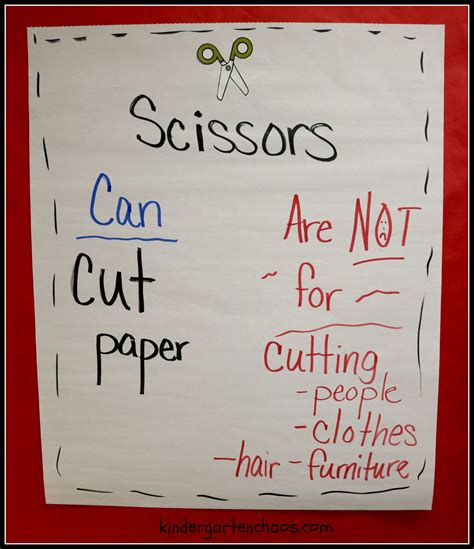 Scissors
Can
cut
paper
Are NOT
~ for ~
cutting
- people
- clothes
- hair - furniture
kindergartenchaos.com